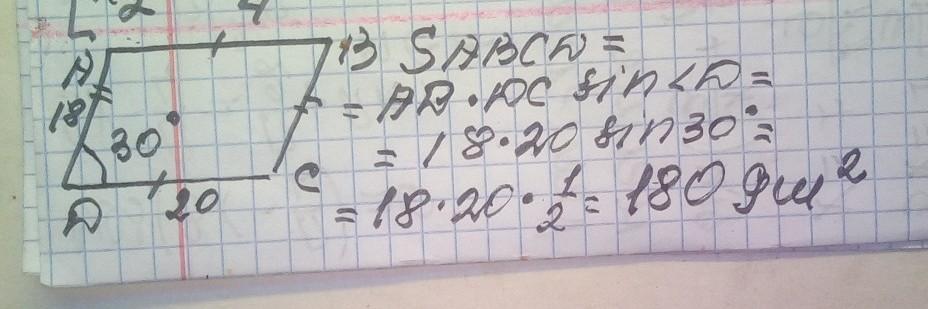 A
B
18
30°
D
20
C
S ABCD =
= AD · DC sin < D =
= 18 · 20 sin 30° =
= 18 · 20 · 1/2 = 180 дм²